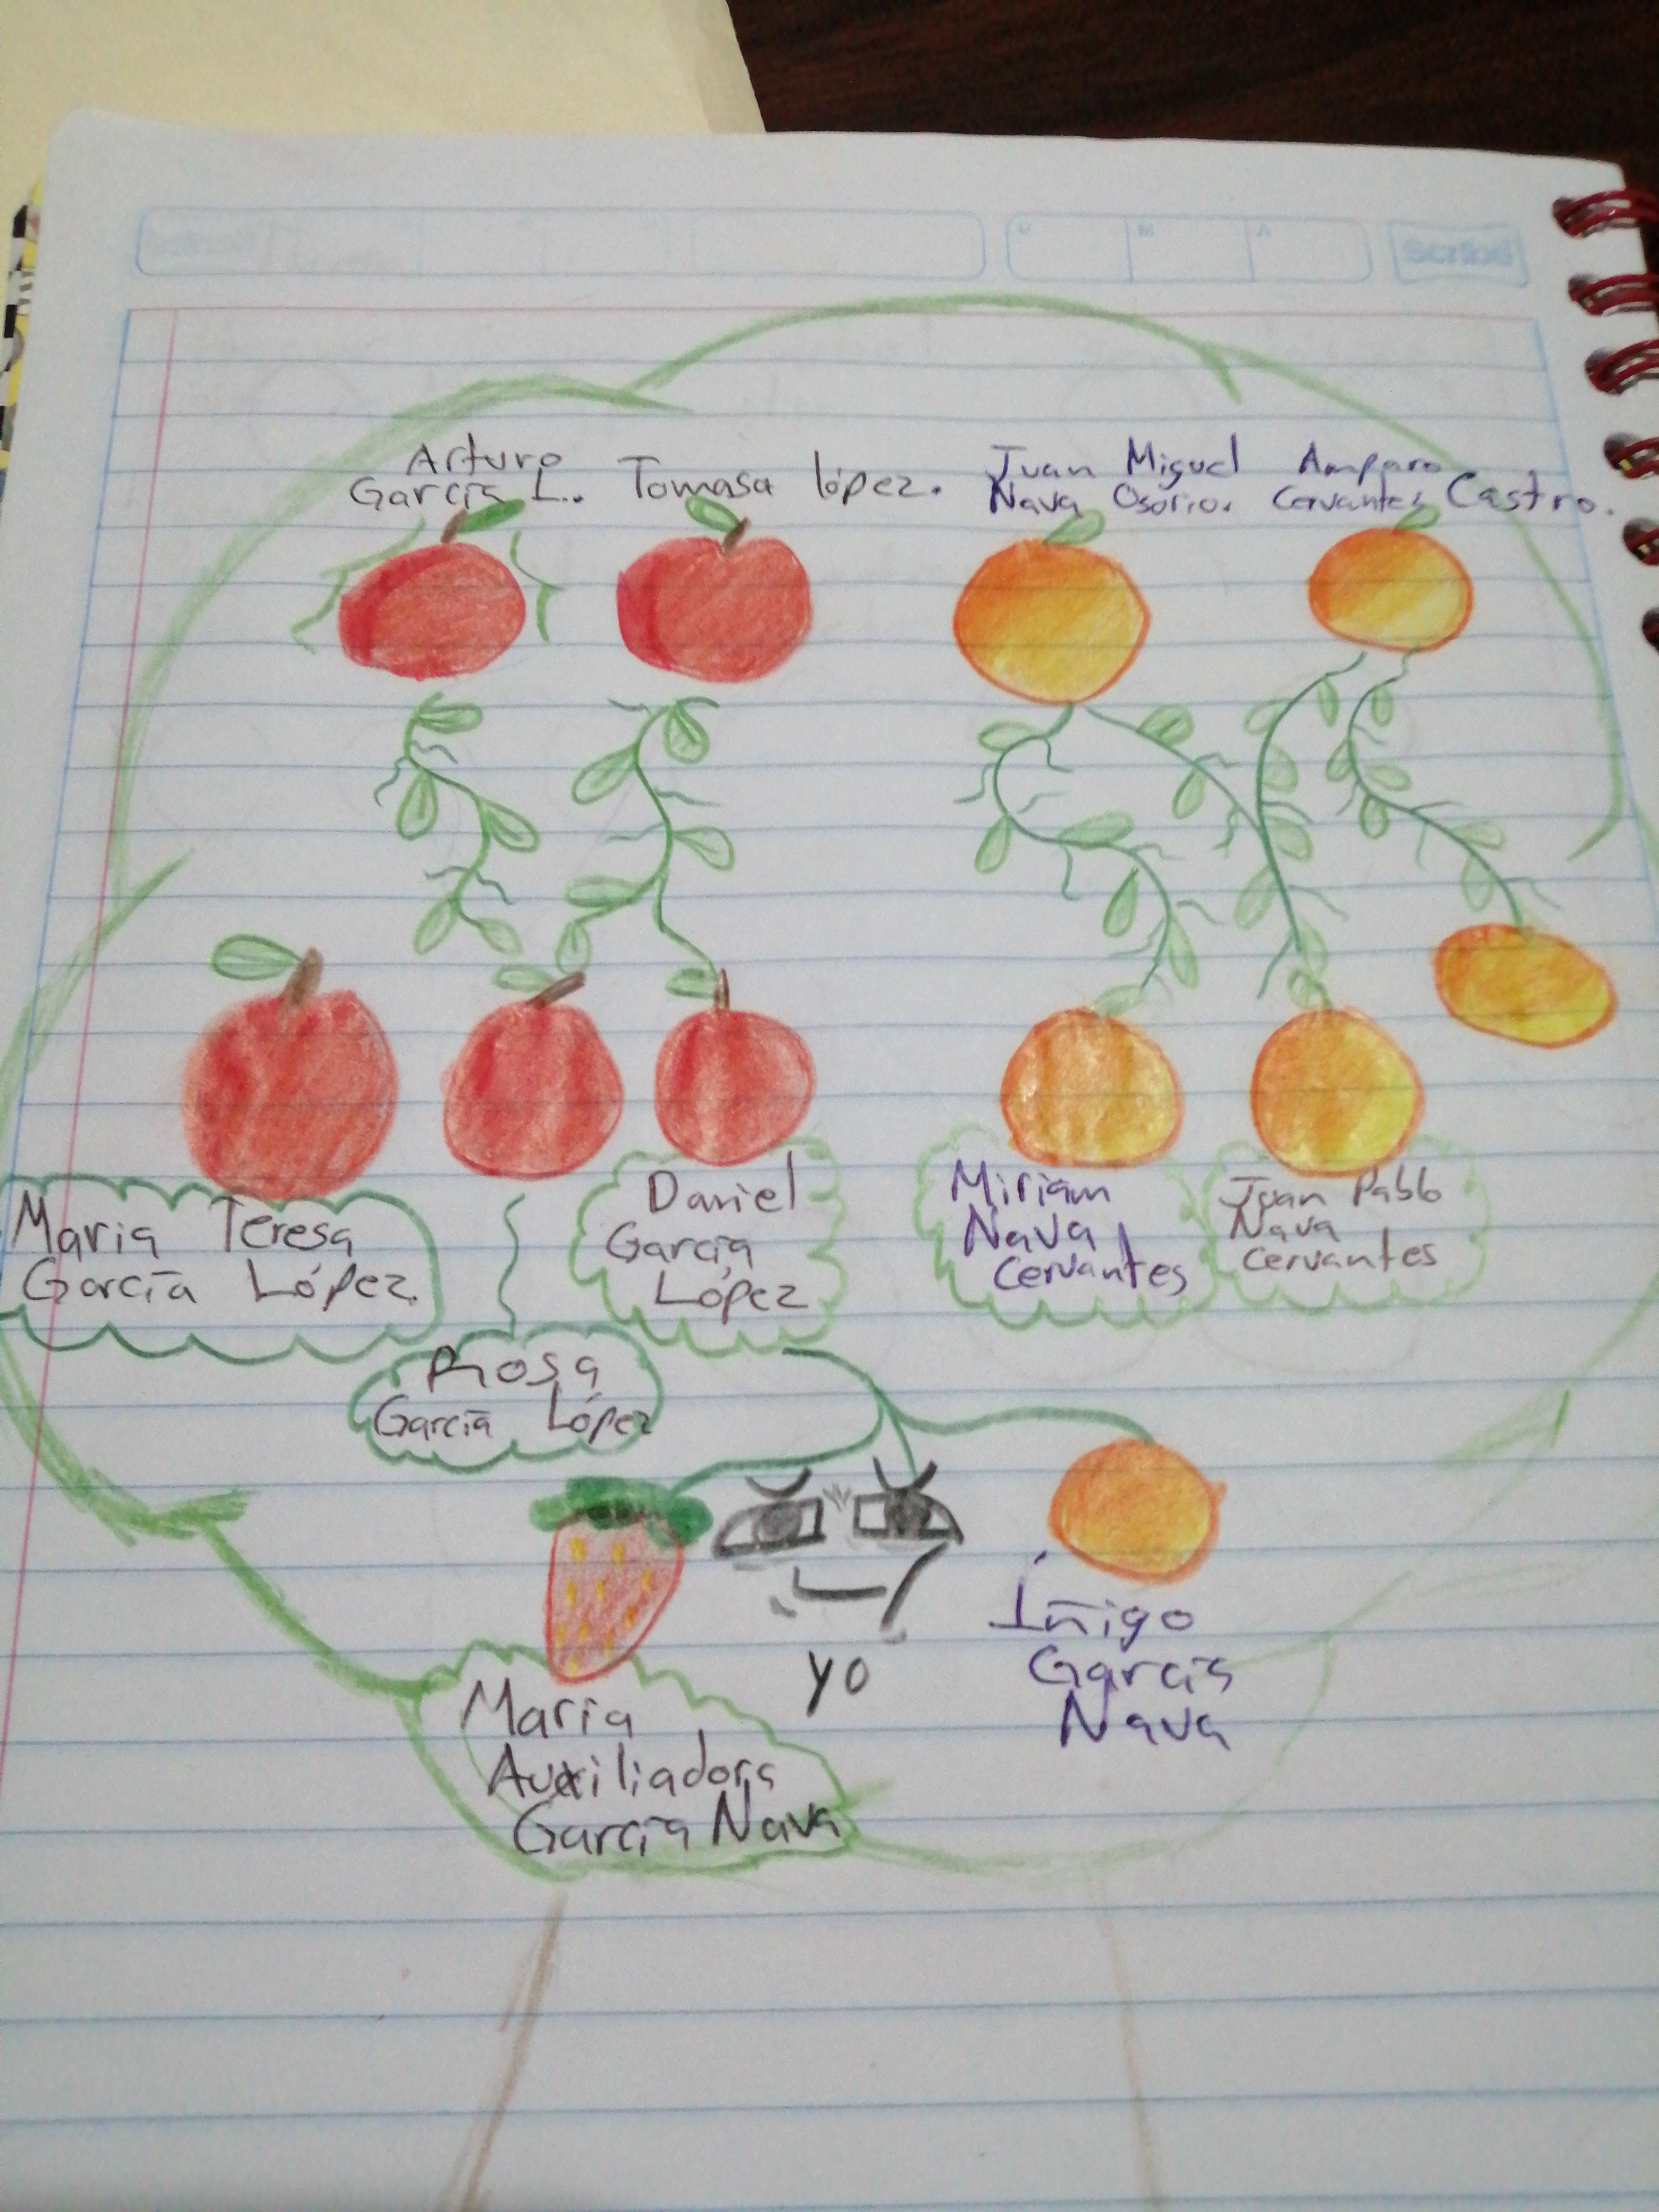 Scribe
D M A
Arturo
García L.
Tomasa lópez.
Juan Miguel
Nava Osorio.
Amparo
Cervantes Castro.
Maria Teresa
García López.
Daniel
García
López
Miriam
Nava
Cervantes
Juan Pablo
Nava
Cervantes
Rosa
García López
yo
Íñigo
García
Nava
Maria
Auxiliadora
García Nava